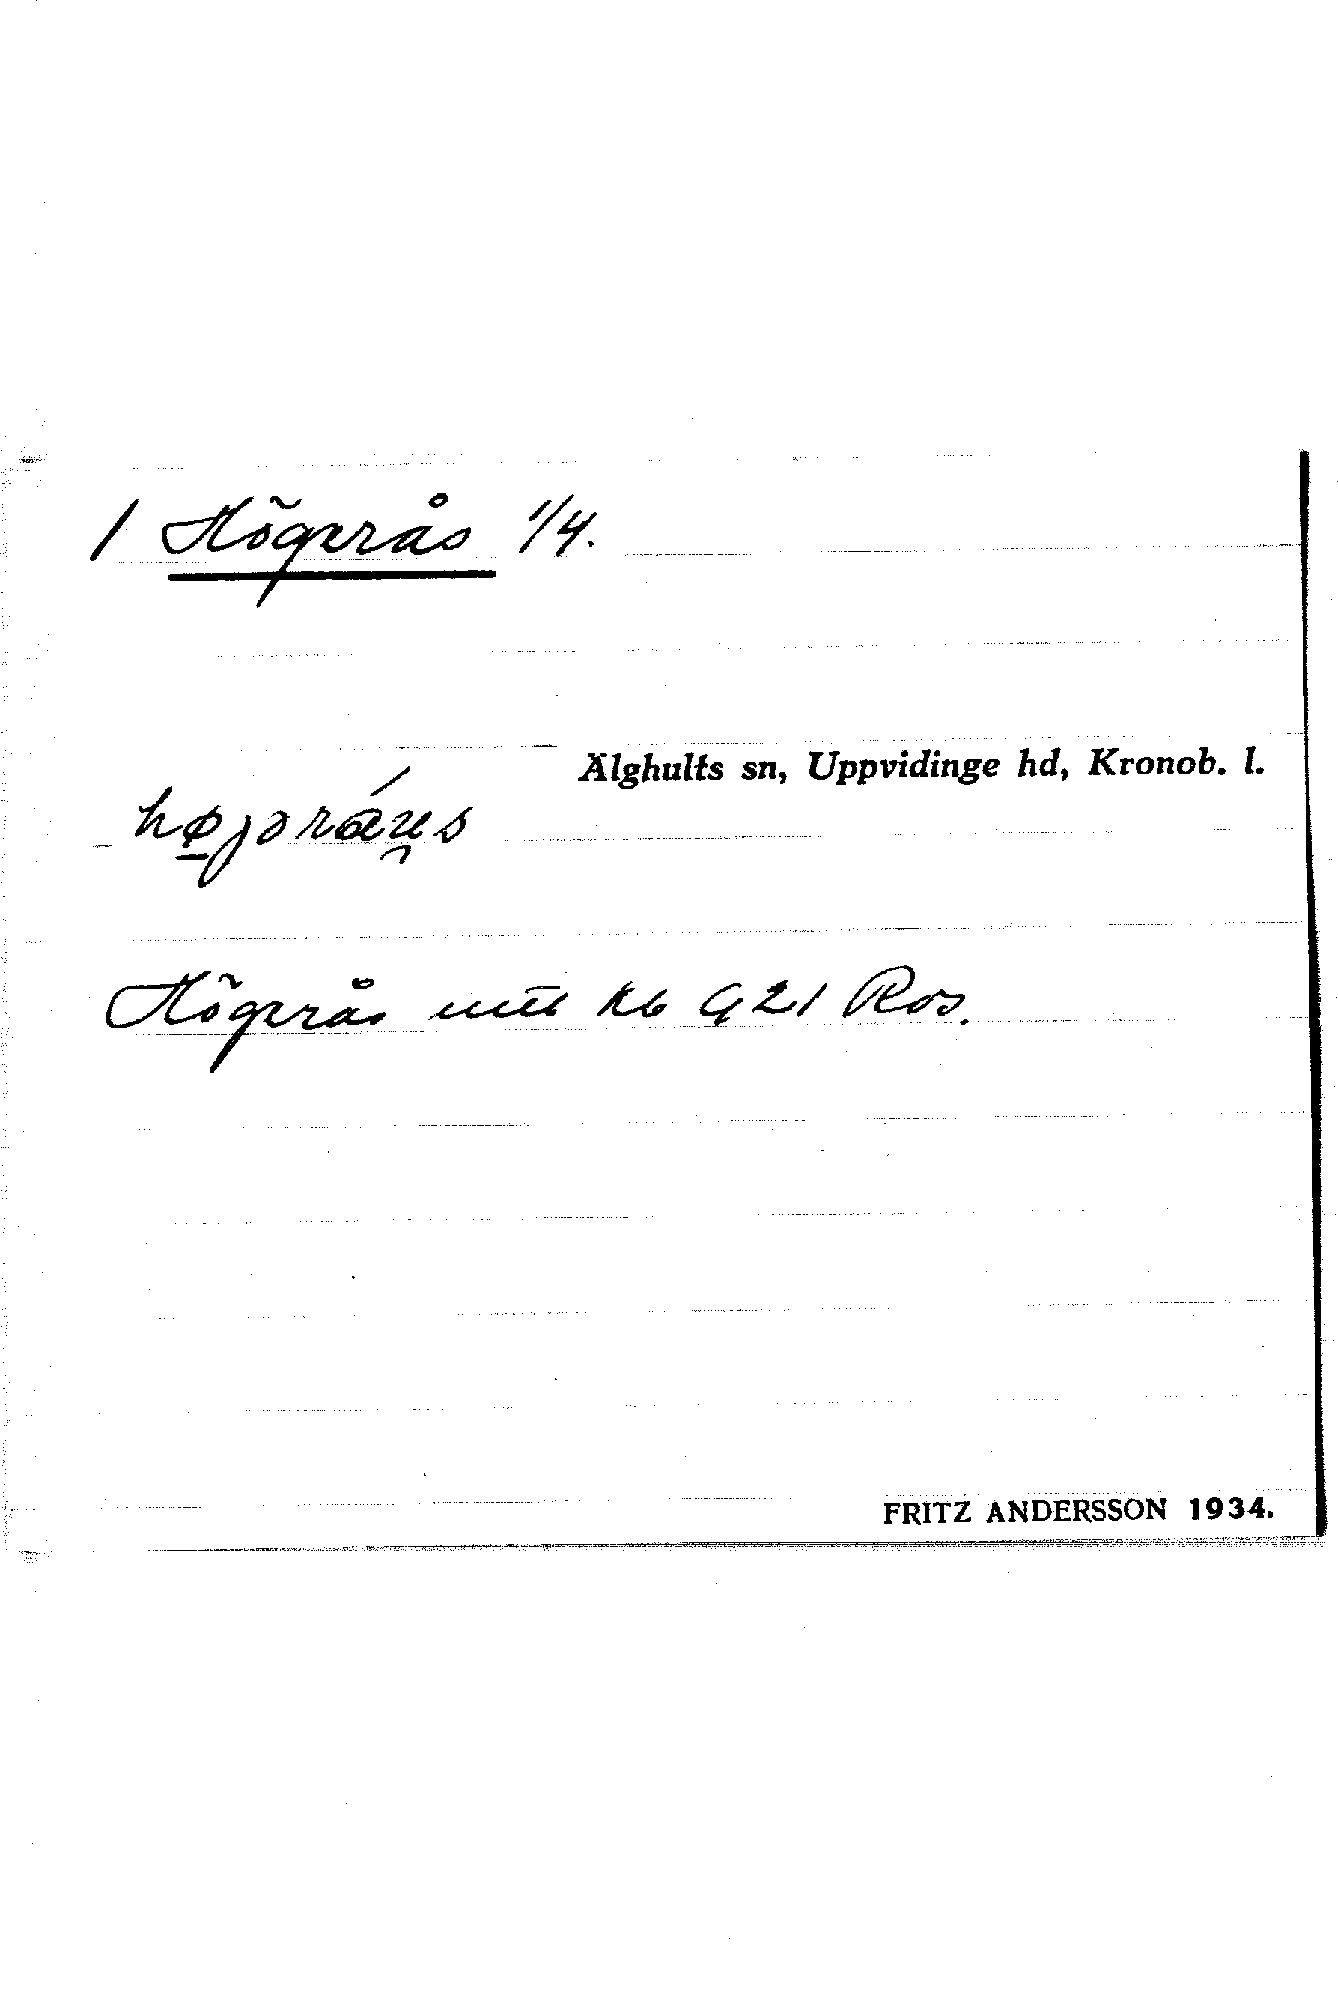 1 Högerås 1/4.
Älghults sn, Uppvidinge hd, Kronob. l.
Högerås Kb G 21 Ros.
FRITZ ANDERSSON 1934.